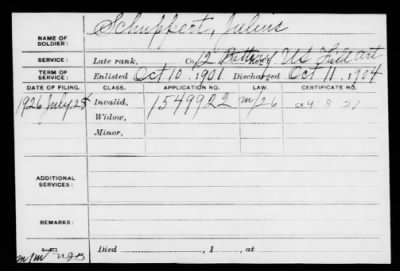 NAME OF SOLDIER: Schuppert, Julius
SERVICE: Late rank, Co 12 Battery US Field art
TERM OF SERVICE: Enlisted Oct 10, 1901 Discharged Oct 11, 1904
DATE OF FILING. CLASS. APPLICATION NO. LAW. CERTIFICATE NO.
1926 July 28 Invalid, 1549922 m/26
Widow,
Minor,
ADDITIONAL SERVICES:
REMARKS:
Died , 1 , at